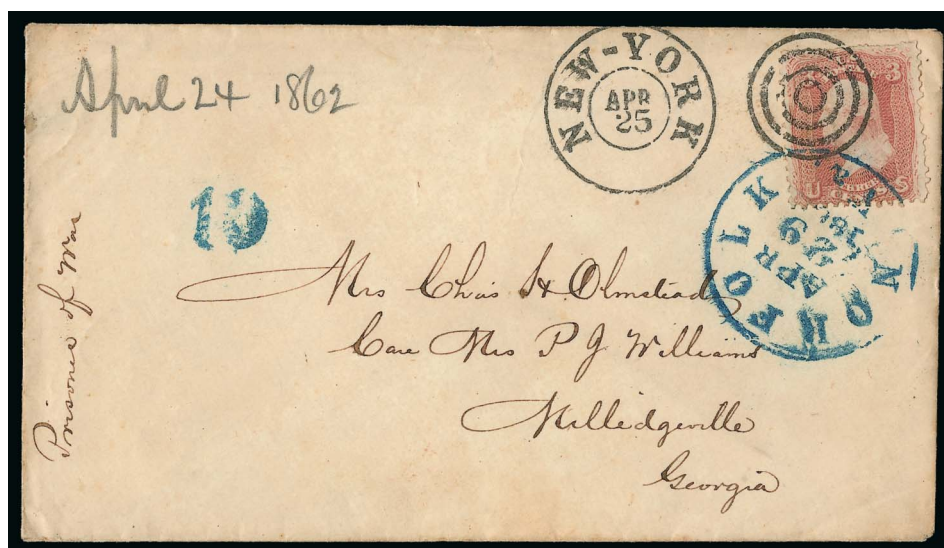 April 24 1862
NEW-YORK
APR
25
3
U S
CENTS
10
NORFOLK
APR
29
1862
Prisoner of War
Mrs Chas H. Olmstead
Care Mrs P J Williams
Milledgeville
Georgia